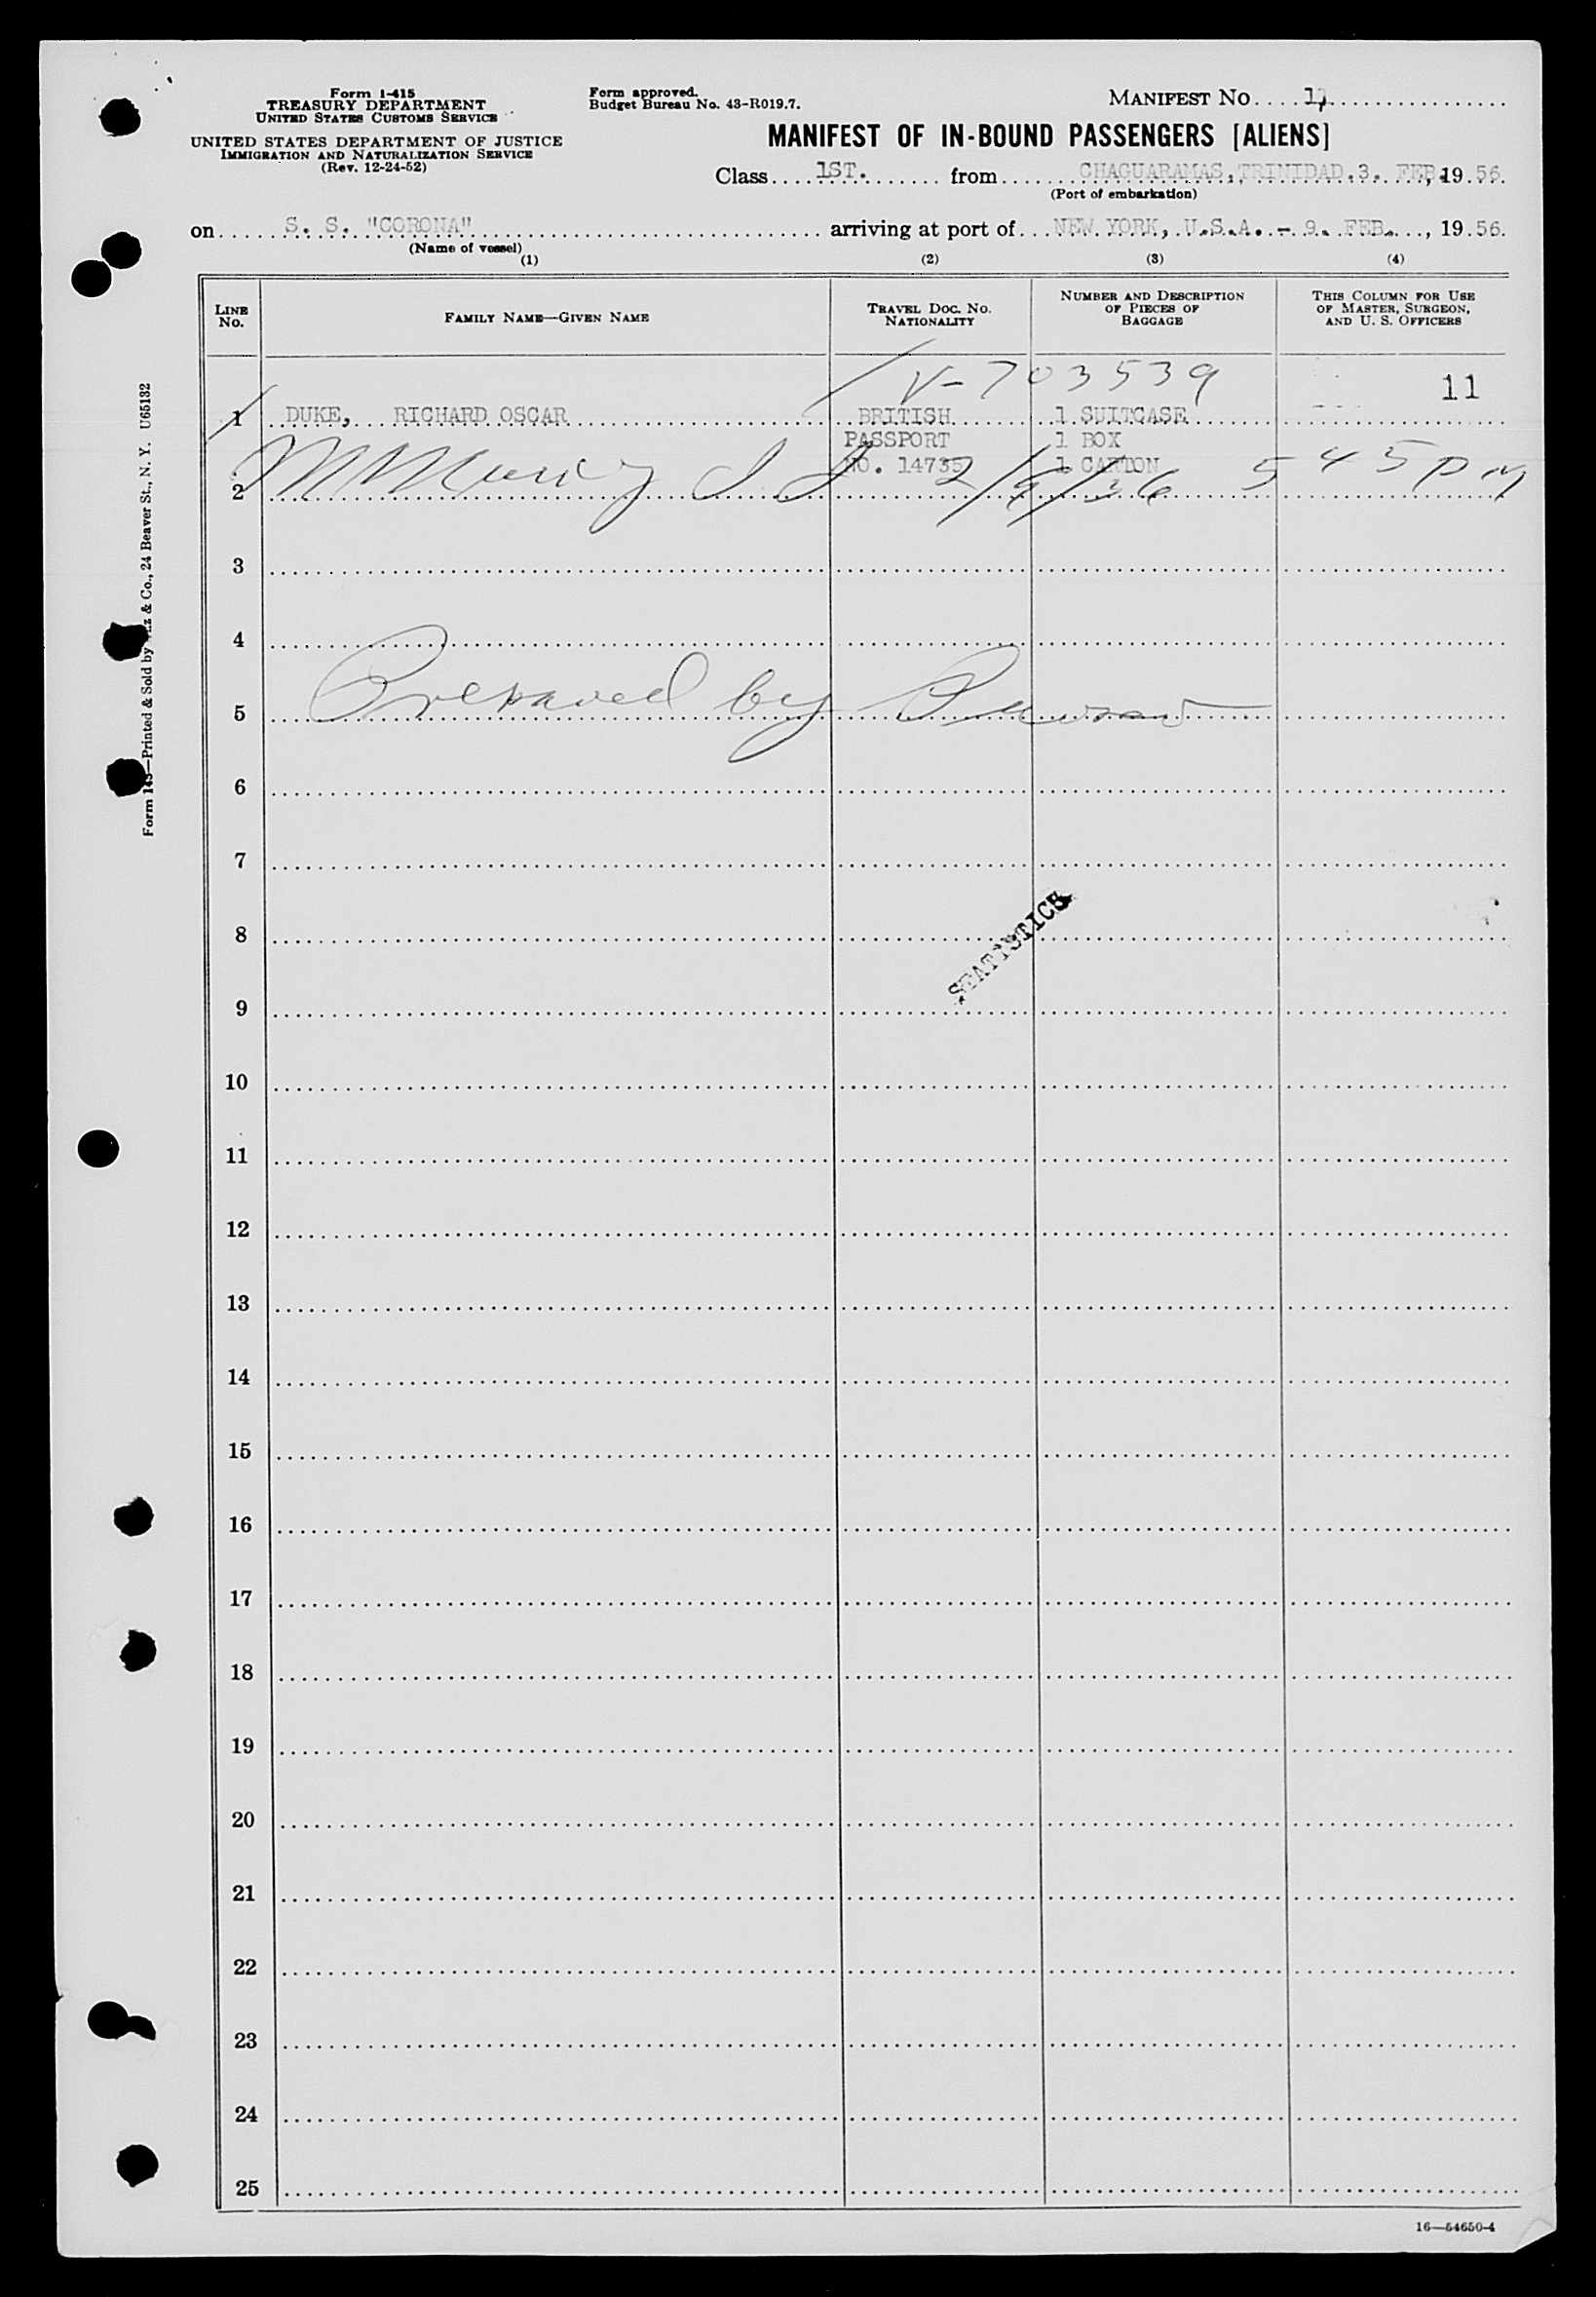 Form I-415
TREASURY DEPARTMENT
UNITED STATES CUSTOMS SERVICE
UNITED STATES DEPARTMENT OF JUSTICE
IMMIGRATION AND NATURALIZATION SERVICE
(Rev. 12-24-52)
Form approved.
Budget Bureau No. 43-R019.7.
MANIFEST NO. 1
MANIFEST OF IN-BOUND PASSENGERS [ALIENS]
Class 1ST. from CHAGUARAMAS, TRINIDAD. 3. FEB., 1956.
(Port of embarkation)
on S. S. "CORONA" arriving at port of NEW YORK, U.S.A. - 9. FEB., 1956.
(Name of vessel)
(1) (2) (3) (4)
LINE NO. FAMILY NAME—GIVEN NAME TRAVEL DOC. NO. NATIONALITY NUMBER AND DESCRIPTION OF PIECES OF BAGGAGE THIS COLUMN FOR USE OF MASTER, SURGEON, AND U. S. OFFICERS
V-703539 11
1 DUKE, RICHARD OSCAR BRITISH 1 SUITCASE
PASSPORT 1 BOX
NO. 14735 1 CARTON
2 2/9/56 545 PM
3
4
5 Prepared by Purser
6
7
8
STATISTICS
9
10
11
12
13
14
15
16
17
18
19
20
21
22
23
24
25
16—54650-4
Form 143—Printed & Sold by & Co., 24 Beaver St., N. Y. U65132